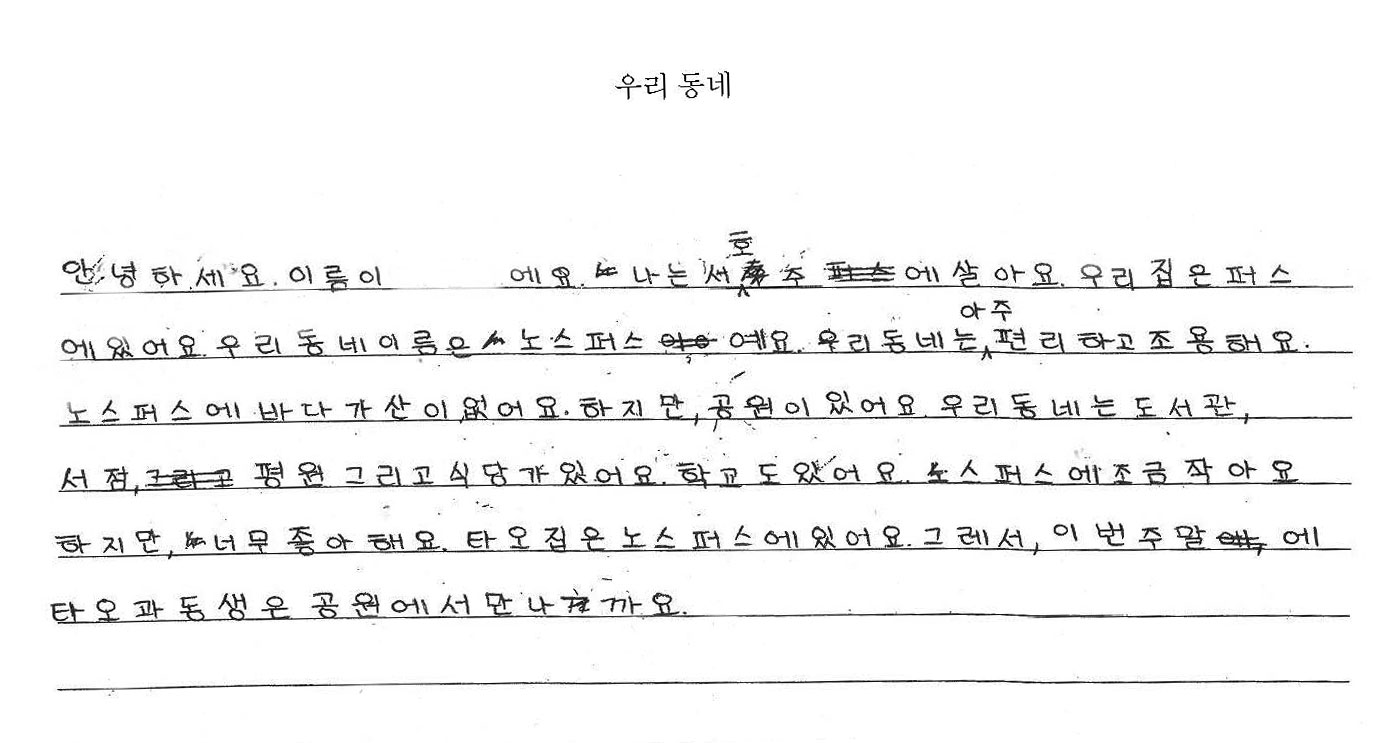 우리 동네
안녕하세요. 이름이 에요. 나는 서호주에 살아요. 우리 집은 퍼스
에 있어요 우리 동네 이름은 노스퍼스 예요. 우리 동네는 아주 편리하고 조용해요.
노스퍼스에 바다가 산이 없어요. 하지만, 공원이 있어요 우리 동네는 도서관,
서점, 평원 그리고 식당가 있어요. 학교도 있어요. 노스퍼스에 조금 작아요
하지만, 너무 좋아해요. 타오 집은 노스퍼스에 있어요. 그레서, 이번 주말 에
타오과 동생은 공원에서 만나까요.